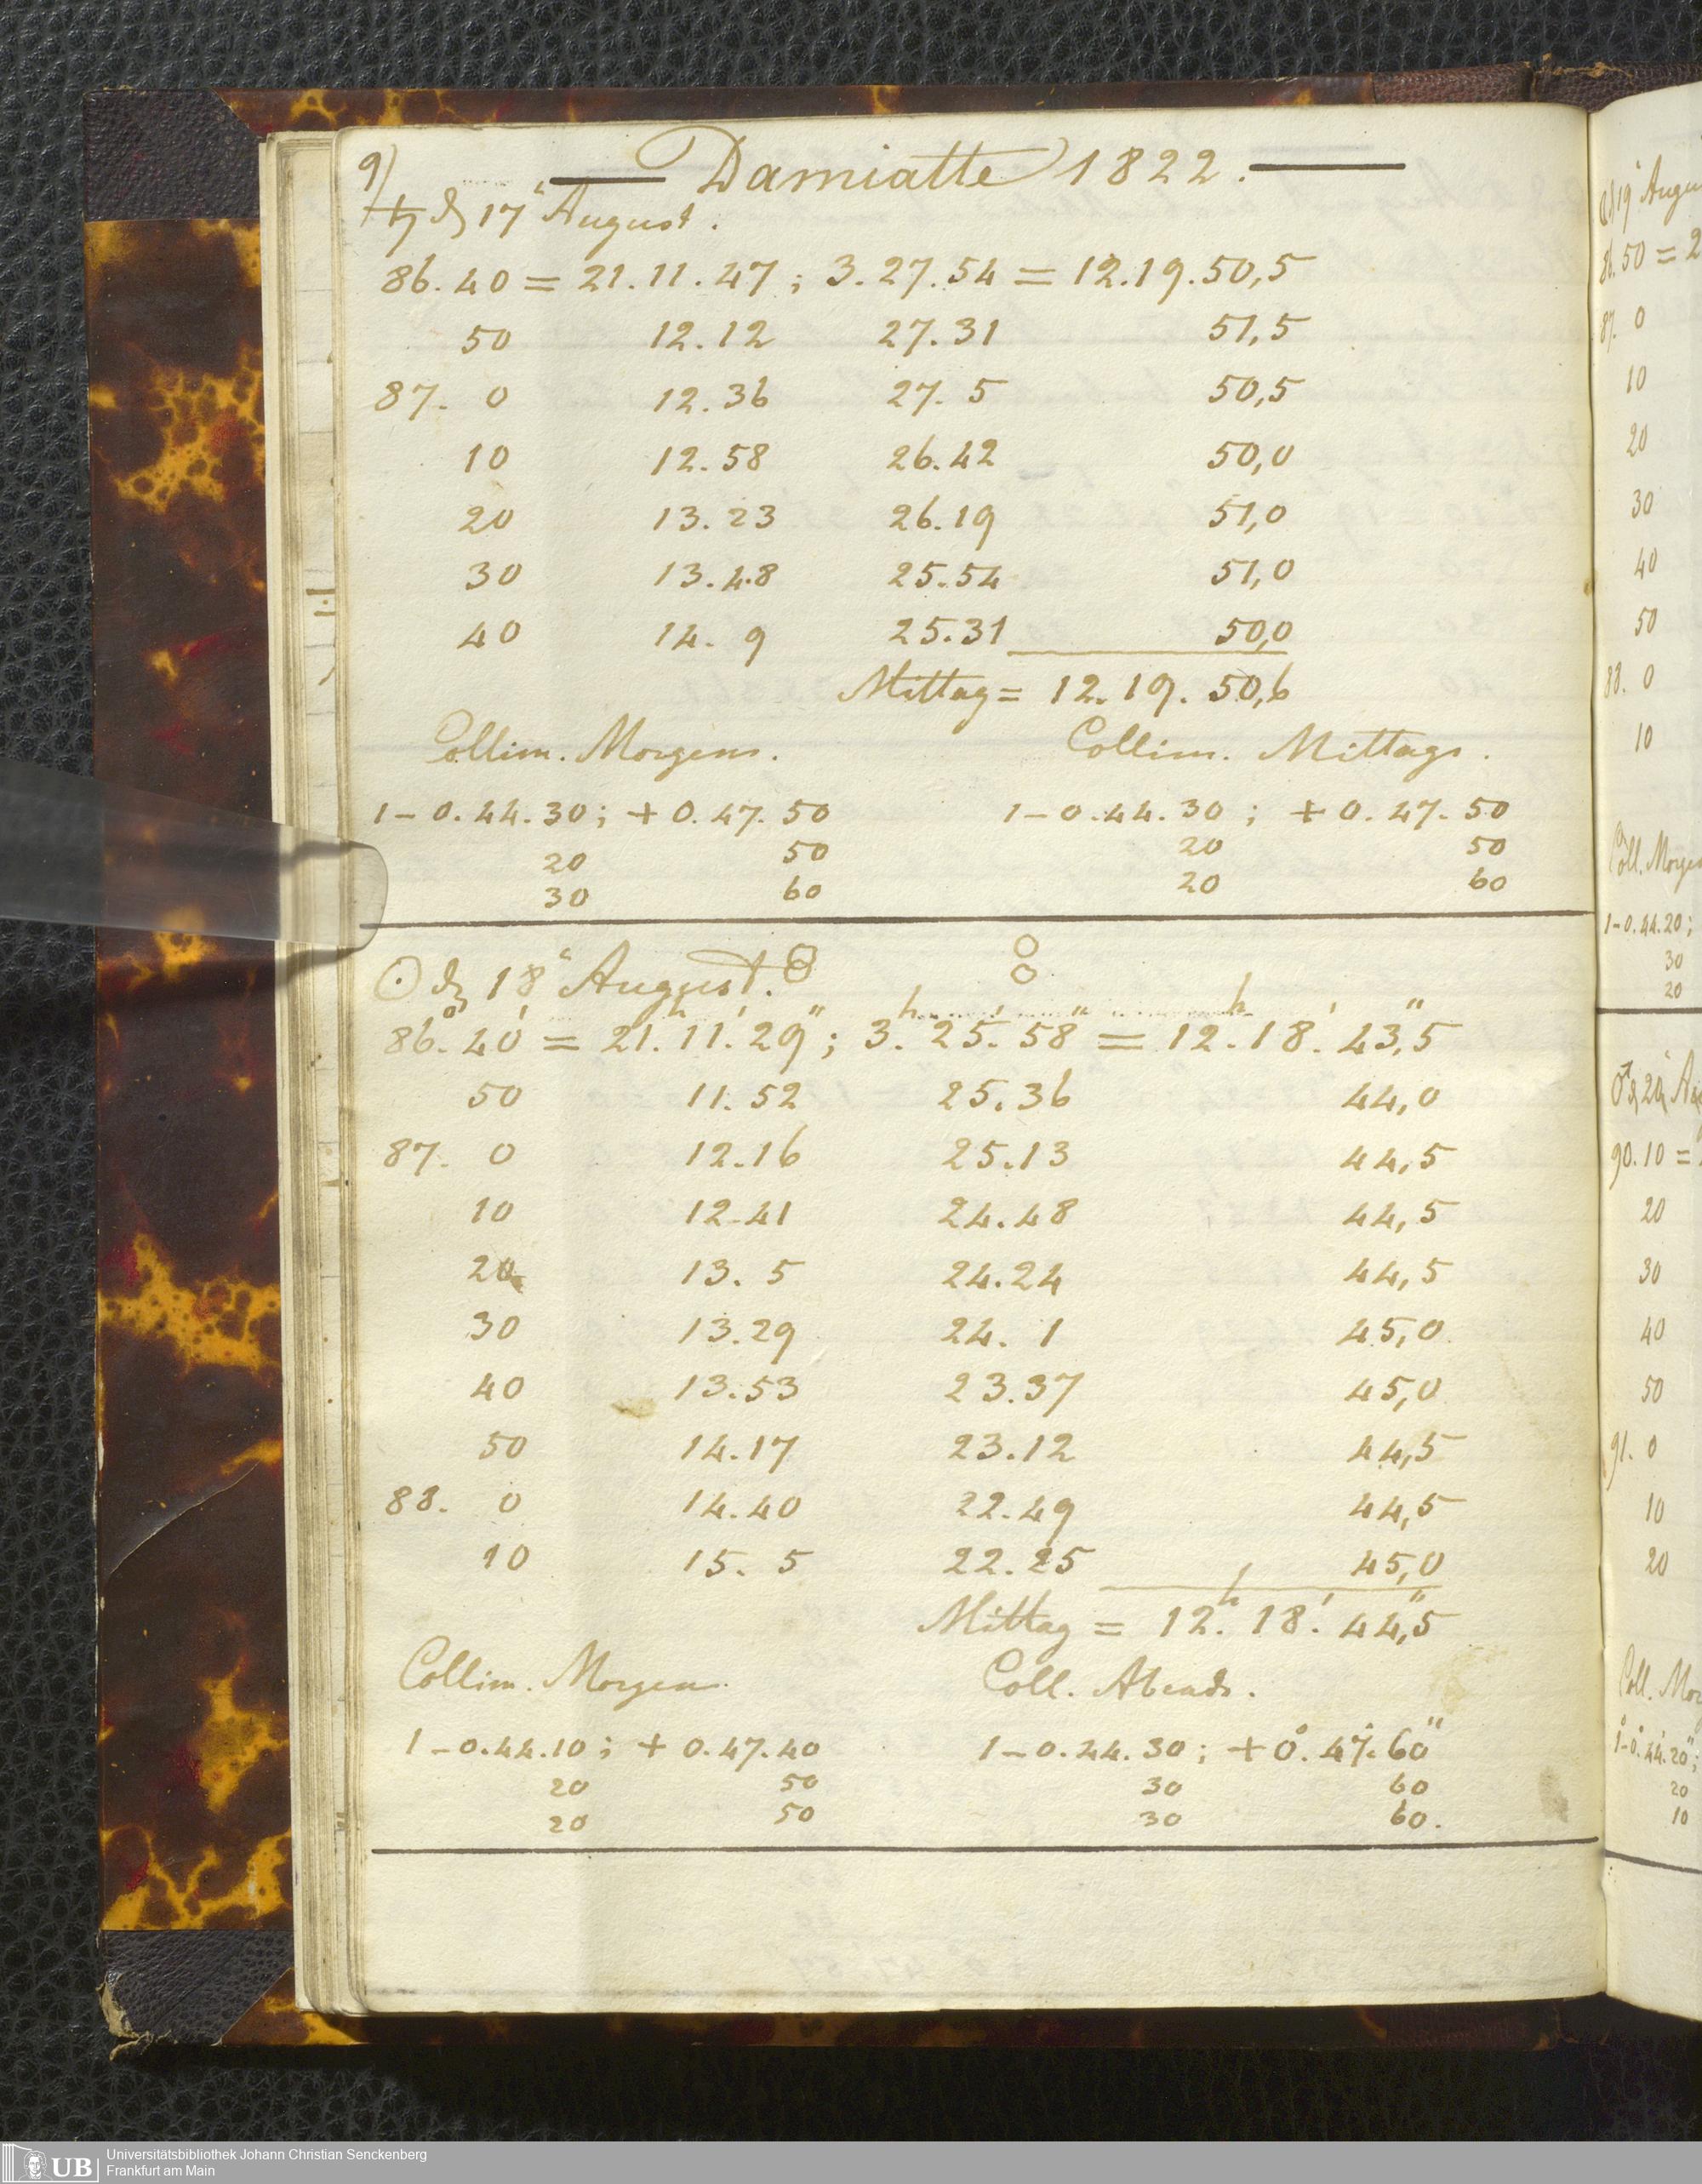 9)
— Damiatte 1822. —
♄ d. 17ᵗ August.
86.40 = 21.11.47 ; 3.27.54 = 12.19.50,5
50 12.12 27.31 51,5
87. 0 12.36 27. 5 50,5
10 12.58 26.42 50,0
20 13.23 26.19 51,0
30 13.48 25.54 51,0
40 14. 9 25.31 50,0
Mittag = 12.19.50,6
Collim. Morgens. Collim. Mittags.
1-0.44.30; +0.47.50 1-0.44.30 ; +0.47.50
20 50 20 50
30 60 20 60
☉ d. 18ᵗ August.
86.°40' = 21.ʰ11.'29"; 3.ʰ25.'58" = 12.ʰ18.'43,"5
50 11.52 25.36 44,0
87. 0 12.16 25.13 44,5
10 12.41 24.48 44,5
20 13. 5 24.24 44,5
30 13.29 24. 1 45,0
40 13.53 23.37 45,0
50 14.17 23.12 44,5
88. 0 14.40 22.49 44,5
10 15. 5 22.25 45,0
Mittag = 12.ʰ 18.' 44,"5
Collim. Morgen. Coll. Abends.
1-0.44.10; +0.47.40 1-0.44.30; +0.°47.'60"
20 50 30 60
20 50 30 60.
50 = 2
87. 0
10
20
30
40
50
88. 0
10
1-0.44.20;
30
20
90.10 =
20
30
40
50
91. 0
10
20
1-0.44.20";
20
10
UB
Universitätsbibliothek Johann Christian Senckenberg
Frankfurt am Main